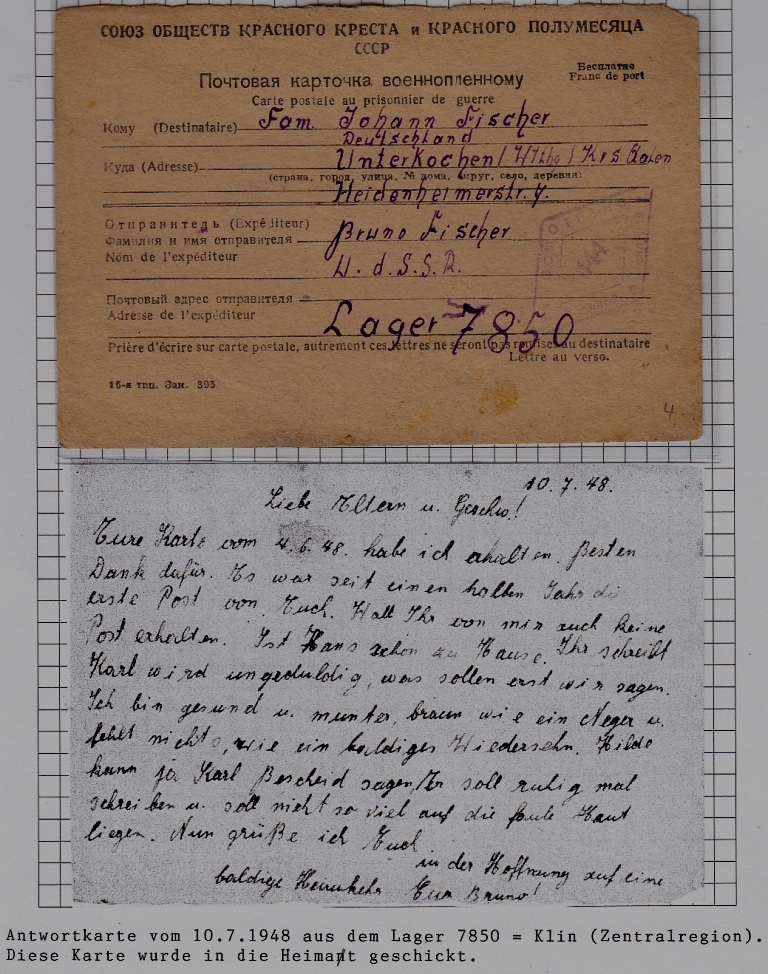 СОЮЗ ОБЩЕСТВ КРАСНОГО КРЕСТА и КРАСНОГО ПОЛУМЕСЯЦА
СССР
Бесплатно
Franc de port
Почтовая карточка военнопленному
Carte postale au prisonnier de guerre
Кому (Destinataire) Fam. Johann Fischer
Deutschland
Куда (Adresse) Unterkochen / Wttbg / Krs Aalen
(страна, город, улица, № дома, округ, село, деревня)
Heidenheimerstr. 7.
Отправитель (Expéditeur)
Фамилия и имя отправителя Bruno Fischer
Nom de l'expéditeur
U. d. S. S. R.
Почтовый адрес отправителя
Adresse de l'expéditeur
Lager 7850
Prière d'écrire sur carte postale, autrement ces lettres ne seront pas remises au destinataire
Lettre au verso.
16-я тип. Зак. 395
4
10. 7. 48.
Liebe Eltern u. Geschw!
Eure Karte vom 4. 6. 48. habe ich erhalten. Besten
Dank dafür. Es war seit einen halben Jahr die
erste Post von Euch. Habt Ihr von mir auch keine
Post erhalten. Ist Hans schon zu Hause. Ihr schreibt
Karl wird ungeduldig, was sollen erst wir sagen.
Ich bin gesund u. munter, braun wie ein Neger u.
fehlt nichts, wie ein baldiges Wiedersehn. Hilde
kann ja Karl Bescheid sagen, Er soll ruhig mal
schreiben u. soll nicht so viel auf die faule Haut
liegen. Nun grüße ich Euch
in der Hoffnung auf eine
baldige Heimkehr Euer Bruno!
Antwortkarte vom 10.7.1948 aus dem Lager 7850 = Klin (Zentralregion).
Diese Karte wurde in die Heimat geschickt.